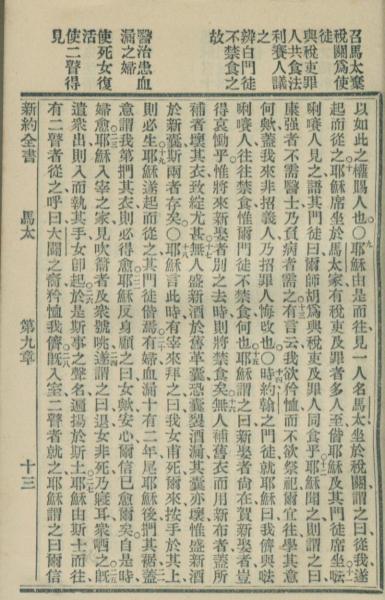 召馬太棄
稅關爲使
徒
與稅吏罪
人共食法
利賽人議
之
辨白門徒
不禁食之
故
醫治患血
漏之婦
使死女復
活
使二瞽得
見
以如此之權賜人也〇耶穌由是而往見一人名馬太坐於稅關謂之曰從我遂
起而從之耶穌席坐於馬太家有稅吏及罪者多人至偕耶穌及其門徒席坐
唎賽人見之語其門徒曰爾師胡爲與稅吏及罪人同食乎耶穌聞之則謂之曰
康强者不需醫士乃負病者需之有言云我欲矜恤而不欲祭祀爾宜往學其意
何歟蓋我來非招義人乃招罪人悔改也〇時約翰之門徒就耶穌曰我儕與
唎賽人往往禁食惟爾門徒不禁食何也耶穌謂之曰新娶者尙在賀新娶者豈
得哀慟乎惟將來新娶者別之去時則將禁食矣無人補舊衣而用新布者蓋所
補者壞其衣致綻尤甚無人盛新酒於舊革囊恐囊裂酒漏其囊亦壞惟盛新酒
於新囊斯兩者存矣〇耶穌言此時有宰來拜之曰我女甫死爾來按手於其上
則必生耶穌遂起而從之其門徒偕焉有婦血漏十有二年尾耶穌後捫其裾蓋
意謂我第捫其衣則必得愈耶穌反身顧之曰女歟安心爾信已愈爾矣自是時
婦愈耶穌入宰之家見吹簫者及衆號咷遂謂之曰退女非死乃寢耳衆哂之旣
遣衆出則入而執其手女卽起於是斯事之聲名遍揚於斯土耶穌由斯土而往
有二瞽者從之呼曰大闢之裔矜恤我儕旣入室二瞽者就之耶穌謂之曰爾信
新約全書 馬太 第九章 十三